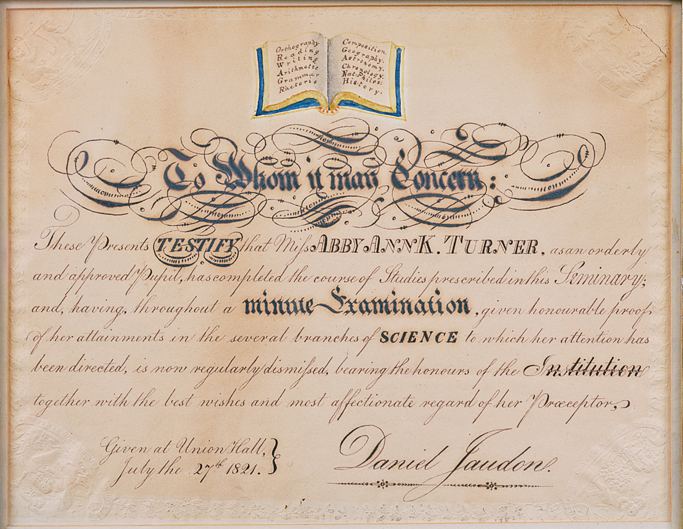 Orthography
Reading
Writing
Arithmetic
Grammar
Rhetoric
Composition,
Geography,
Astronomy,
Chronology,
Nat. Philos:
History.
To Whom it may Concern:
These Presents TESTIFY that Miss ABBY ANN K. TURNER, as an orderly
and approved Pupil, has completed the course of Studies prescribed in this Seminary;
and, having, throughout a minute Examination, given honourable proof
of her attainments in the several branches of SCIENCE to which her attention has
been directed, is now regularly dismissed, bearing the honours of the Institution
together with the best wishes and most affectionate regard of her Præceptor,
Given at Union Hall,
July the 27th 1821.
Daniel Jaudon.